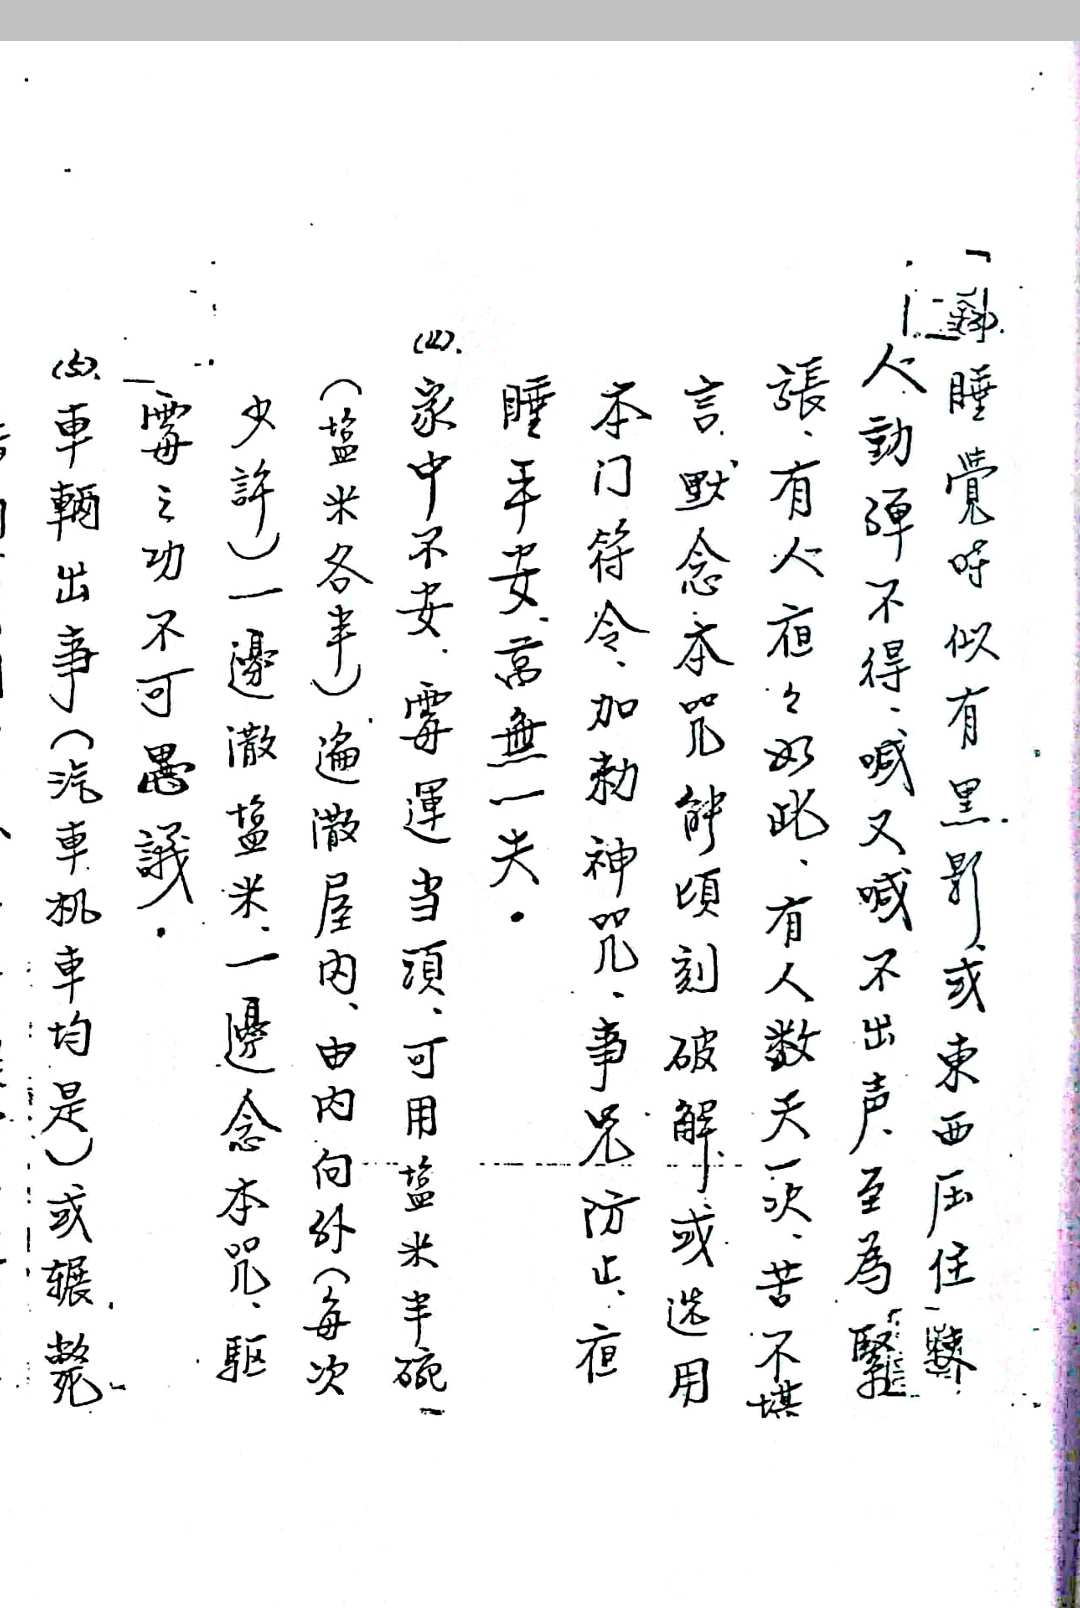 睡覺时似有黑影、或東西压住
人動彈不得、喊又喊不出声、至為緊
張、有人夜々如此、有人数天一次、苦不堪
言、默念本咒能頃刻破解、或选用
本门符令、加勅神咒、事咒防止、夜
睡平安、萬無一失。
(四).家中不安、霉運当頭、可用塩米半碗、
(塩米各半)遍潵屋内、由内向外(每次
少許)一邊潵塩米、一邊念本咒、驱
霉之功不可思議。
(5).車輛出事(汽車机車均是)或辗斃